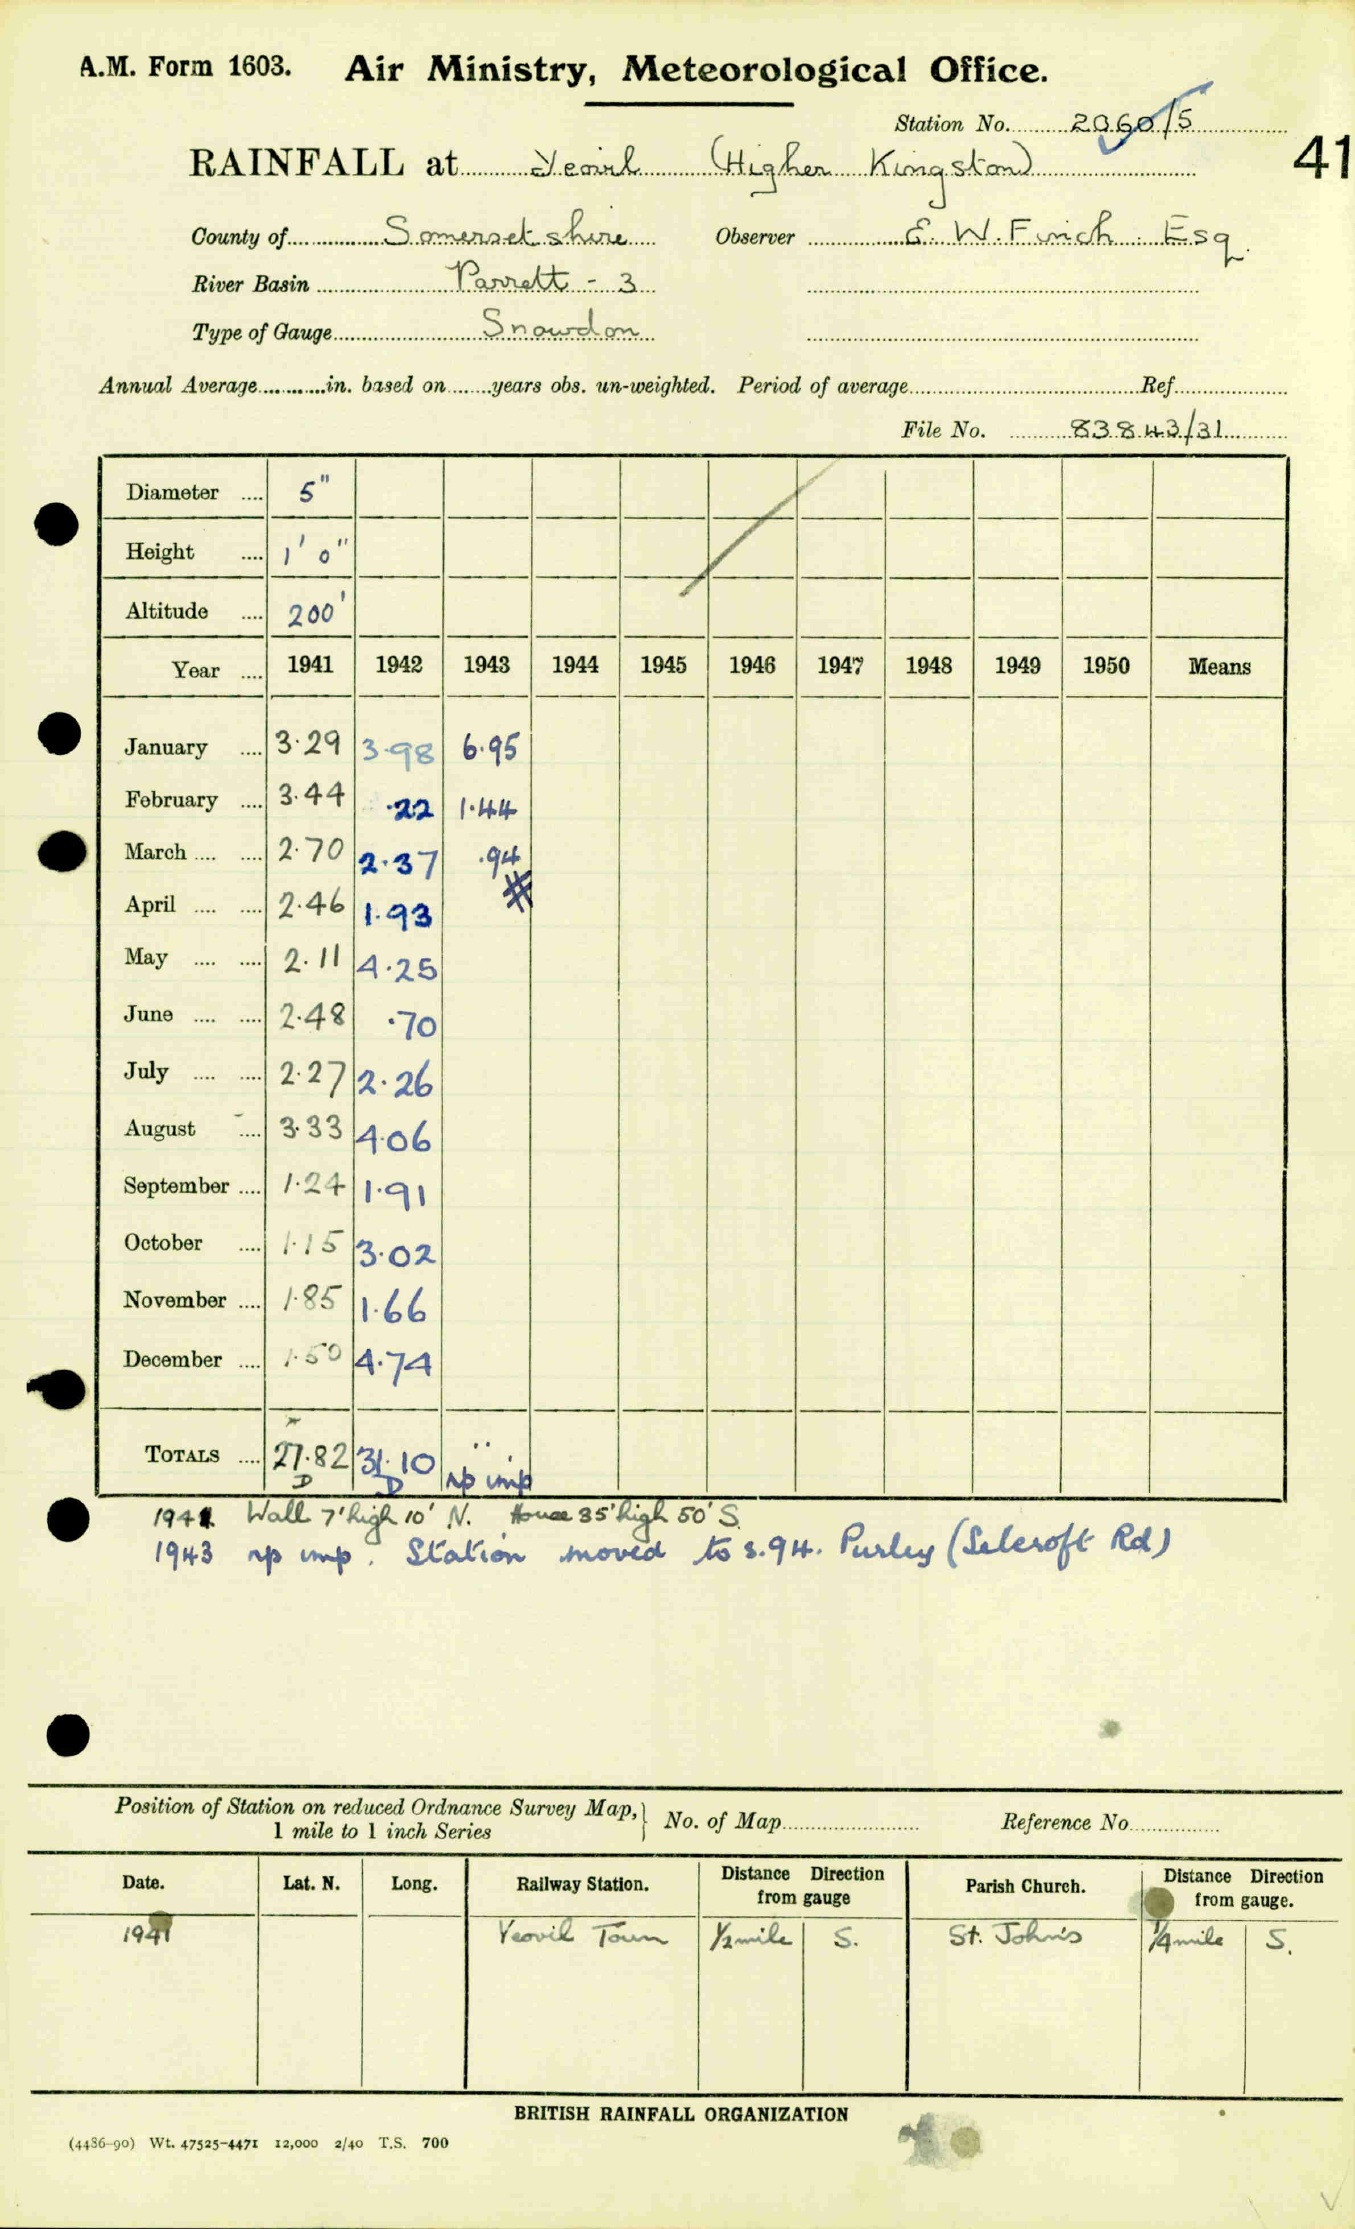 A.M. Form 1603. Air Ministry, Meteorological Office.
Station No. 2060/5
41
RAINFALL at Yeovil (Higher Kingston)
County of Somersetshire Observer E. W. Finch Esq.
River Basin Parrett - 3
Type of Gauge Snowdon
Annual Average in. based on years obs. un-weighted. Period of average Ref.
File No. 83843/31
Diameter .... 5"
Height .... 1' 0"
Altitude .... 200'
Year .... 1941 1942 1943 1944 1945 1946 1947 1948 1949 1950 Means
January .... 3.29 3.98 6.95
February .... 3.44 .22 1.44
March .... .... 2.70 2.37 .94
April .... .... 2.46 1.93 #
May .... .... 2.11 4.25
June .... .... 2.48 .70
July .... .... 2.27 2.26
August .... 3.33 4.06
September .... 1.24 1.91
October .... 1.15 3.02
November .... 1.85 1.66
December .... 1.50 4.74
TOTALS .... 27.82 31.10 ..
D D np imp
1941 Wall 7' high 10' N. House 35' high 50' S.
1943 np imp. Station moved to s.94. Purley (Selcroft Rd)
Position of Station on reduced Ordnance Survey Map, } No. of Map Reference No.
1 mile to 1 inch Series
Date. Lat. N. Long. Railway Station. Distance Direction from gauge Parish Church. Distance Direction from gauge.
1941 Yeovil Town ½ mile S. St. John's ¼ mile S.
BRITISH RAINFALL ORGANIZATION
(4486-90) Wt. 47525-4471 12,000 2/40 T.S. 700